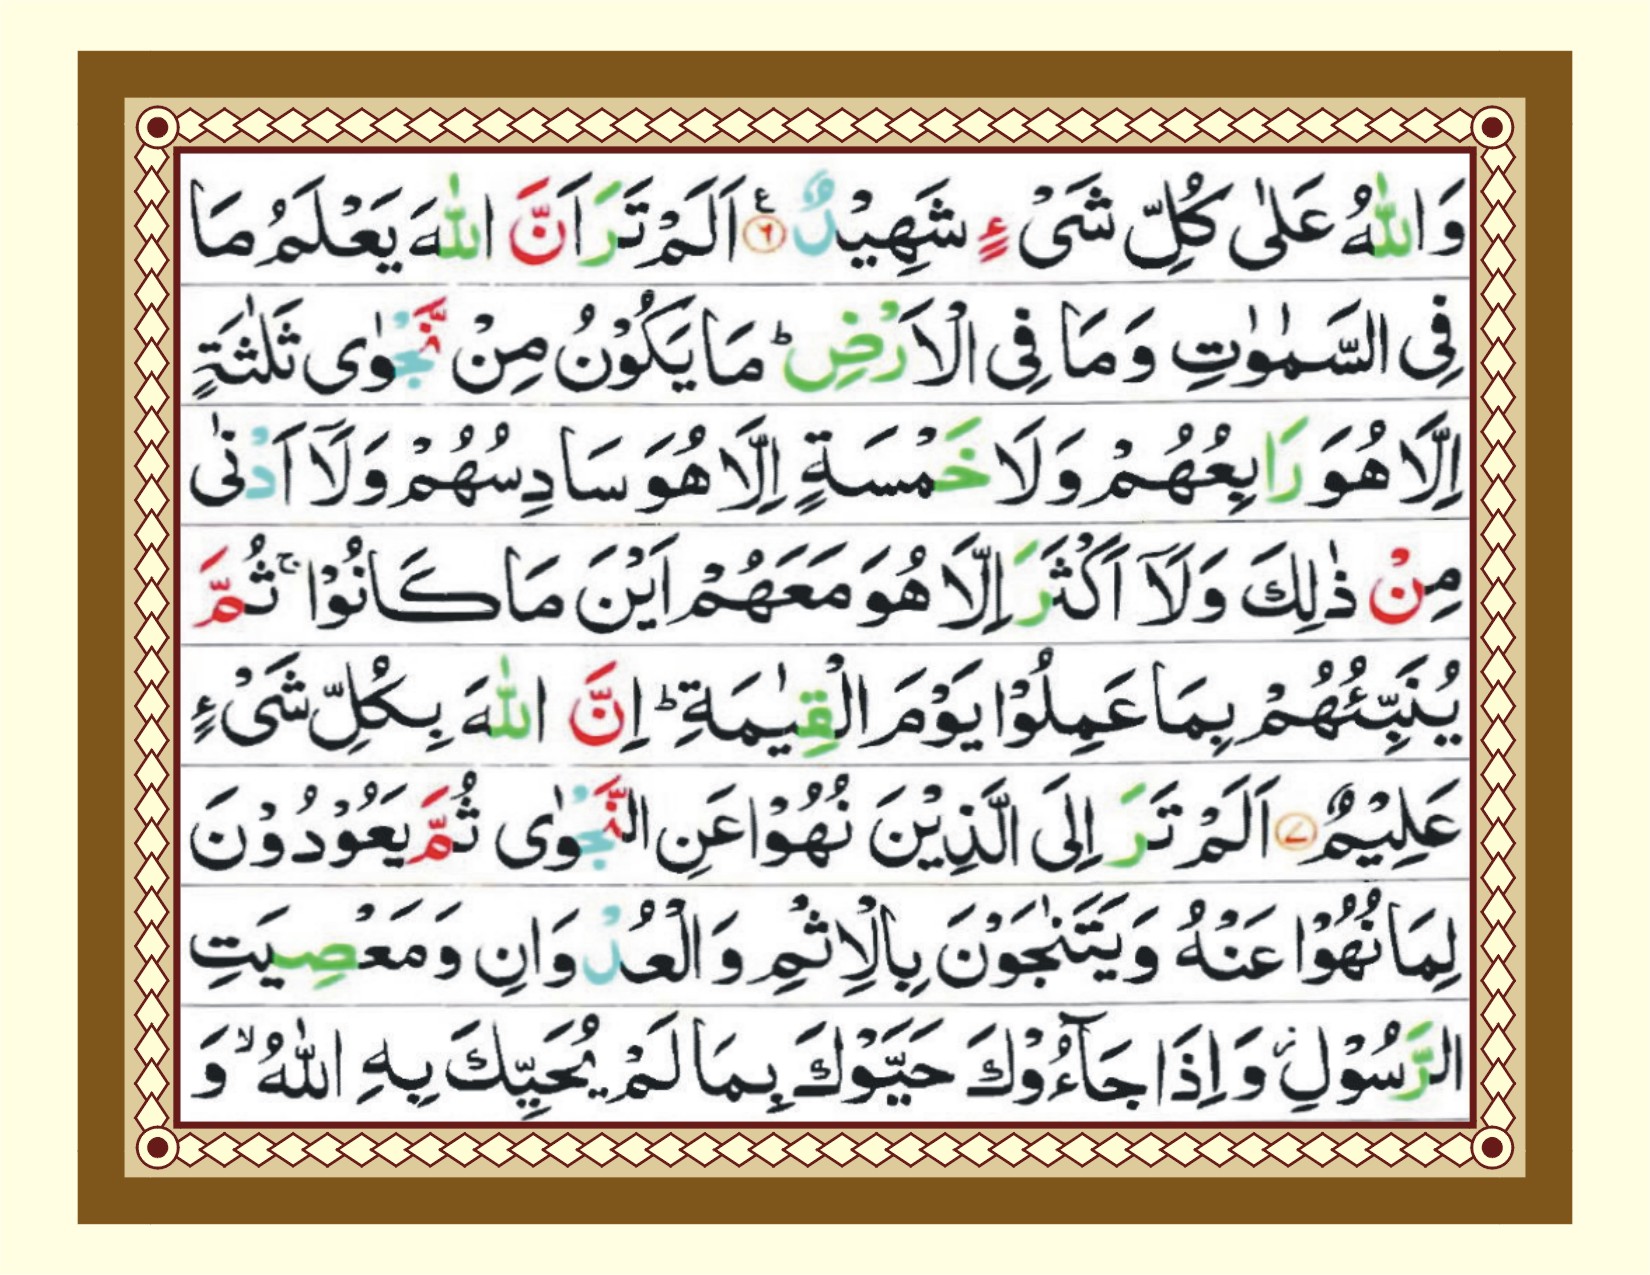 وَاللّٰهُ عَلٰى كُلِّ شَىْءٍ شَهِيْدٌ ۝٦ ع اَلَمْ تَرَ اَنَّ اللّٰهَ يَعْلَمُ مَا
فِى السَّمٰوٰتِ وَمَا فِى الْاَرْضِ ؕ مَا يَكُوْنُ مِنْ نَّجْوٰى ثَلٰثَةٍ
اِلَّا هُوَ رَابِعُهُمْ وَلَا خَمْسَةٍ اِلَّا هُوَ سَادِسُهُمْ وَلَاۤ اَدْنٰى
مِنْ ذٰلِكَ وَلَاۤ اَكْثَرَ اِلَّا هُوَ مَعَهُمْ اَيْنَ مَا كَانُوْا ۚ ثُمَّ
يُنَبِّئُهُمْ بِمَا عَمِلُوْا يَوْمَ الْقِيٰمَةِ ؕ اِنَّ اللّٰهَ بِكُلِّ شَىْءٍ
عَلِيْمٌ ۝٧ اَلَمْ تَرَ اِلَى الَّذِيْنَ نُهُوْا عَنِ النَّجْوٰى ثُمَّ يَعُوْدُوْنَ
لِمَا نُهُوْا عَنْهُ وَيَتَنٰجَوْنَ بِالْاِثْمِ وَالْعُدْوَانِ وَمَعْصِيَتِ
الرَّسُوْلِ ز وَاِذَا جَآءُوْكَ حَيَّوْكَ بِمَا لَمْ يُحَيِّكَ بِهِ اللّٰهُ ۙ وَ